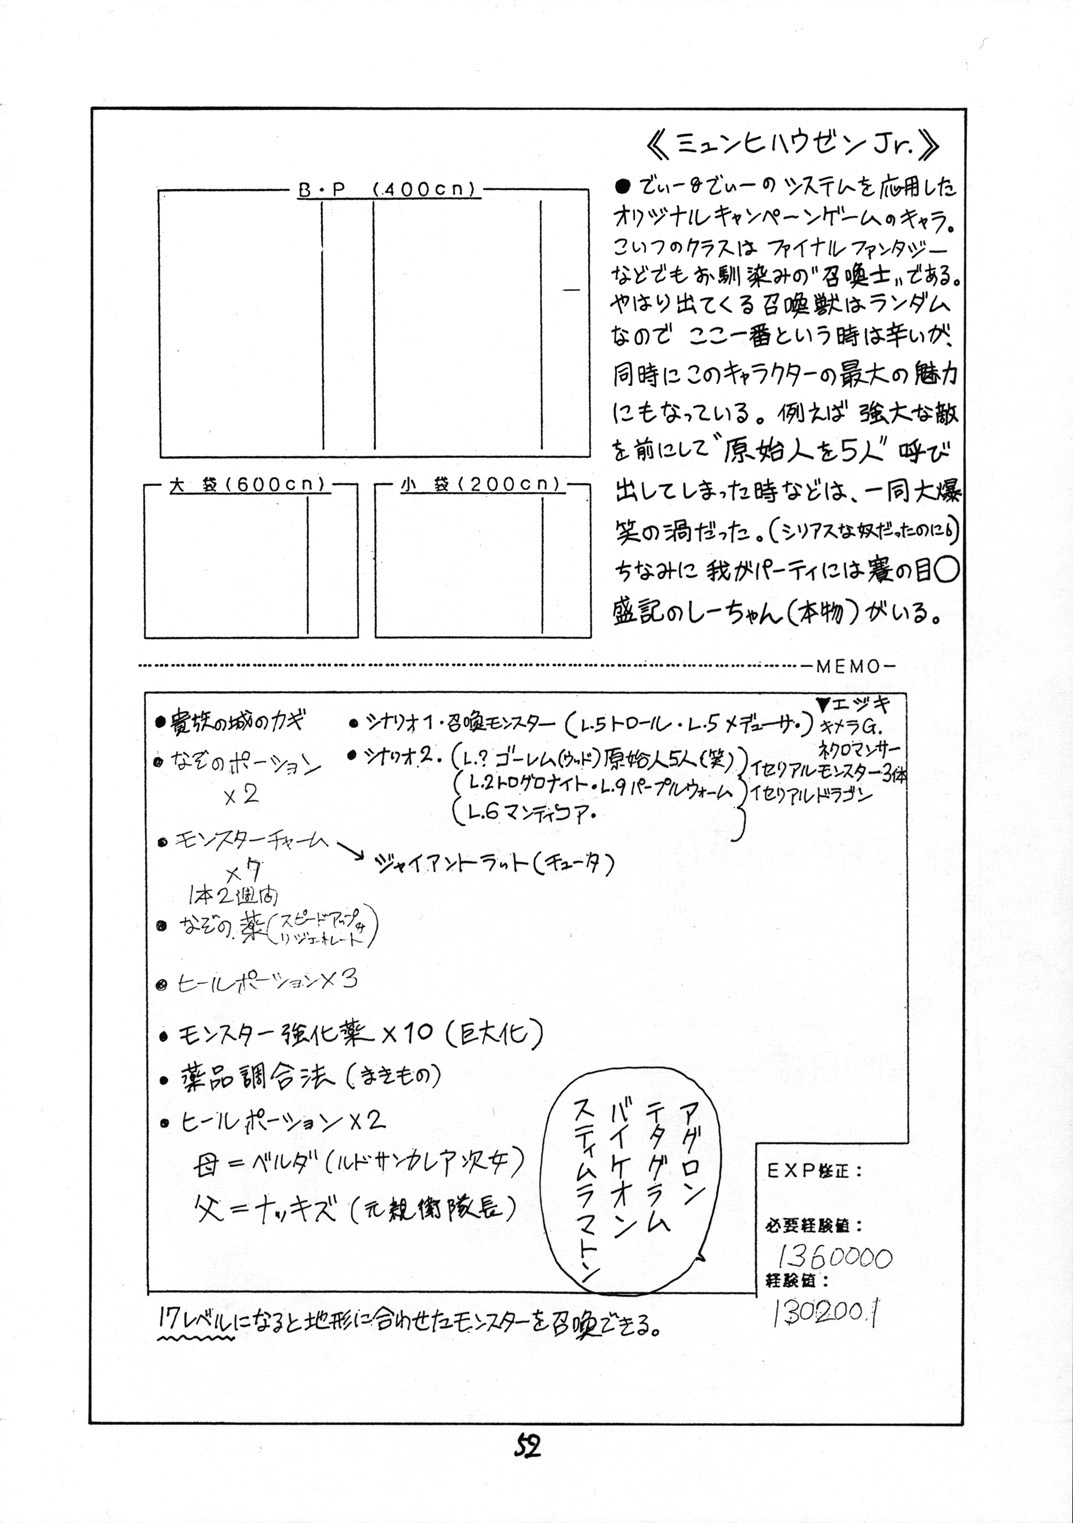 《ミュンヒハウゼンJr.》
●でぃー&でぃーのシステムを応用した
オリジナルキャンペーンゲームのキャラ。
こいつのクラスは ファイナルファンタジー
などでもお馴染みの"召喚士"である。
やはり出てくる召喚獣はランダム
なので ここ一番という時は辛いが、
同時にこのキャラクターの最大の魅力
にもなっている。例えば 強大な敵
を前にして"原始人を5人"呼び
出してしまった時などは、一同大爆
笑の渦だった。(シリアスな奴だったのに)
ちなみに 我がパーティには賽の目〇
盛記のしーちゃん(本物)がいる。
B・P (400cn)
大 袋(600cn)
小 袋(200cn)
―MEMO―
●貴族の城のカギ
・なぞのポーション
×2
・モンスターチャーム
×7
1本2週間
→ジャイアントラット(チュータ)
●なぞの薬(スピードアップ&
リジェネレート)
●ヒールポーション×3
・モンスター強化薬×10(巨大化)
・薬品調合法(まきもの)
・ヒールポーション×2
母=ベルダ(ルドサンカレア次女)
父=ナッキズ(元親衛隊長)
●シナリオ1・召喚モンスター(L.5トロール・L.5メデューサ・)
●シナリオ2.(L.?ゴーレム(ウッド)原始人5人(笑))
(L.2トログロナイト・L.9パープルウォーム)
(L.6マンティコア・)
▼エジキ
キメラG.
ネクロマンサー
イセリアルモンスター3体
イセリアルドラゴン
アグロン
テタグラム
バイケオン
スティムラマトン
EXP修正:
必要経験値:
1360000
経験値:
1302001
17レベルになると地形に合わせたモンスターを召喚できる。
52